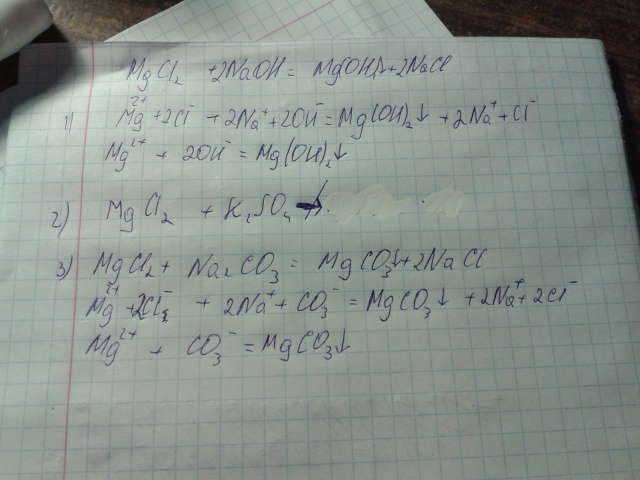 MgCl₂ + 2NaOH = Mg(OH)₂↓ + 2NaCl
1) Mg²⁺ + 2Cl⁻ + 2Na⁺ + 2OH⁻ = Mg(OH)₂↓ + 2Na⁺ + Cl⁻
Mg²⁺ + 2OH⁻ = Mg(OH)₂↓
2) MgCl₂ + K₂SO₄ ↛
3) MgCl₂ + Na₂CO₃ = MgCO₃↓ + 2NaCl
Mg²⁺ + 2Cl⁻ + 2Na⁺ + CO₃⁻ = MgCO₃↓ + 2Na⁺ + 2Cl⁻
Mg²⁺ + CO₃⁻ = MgCO₃↓